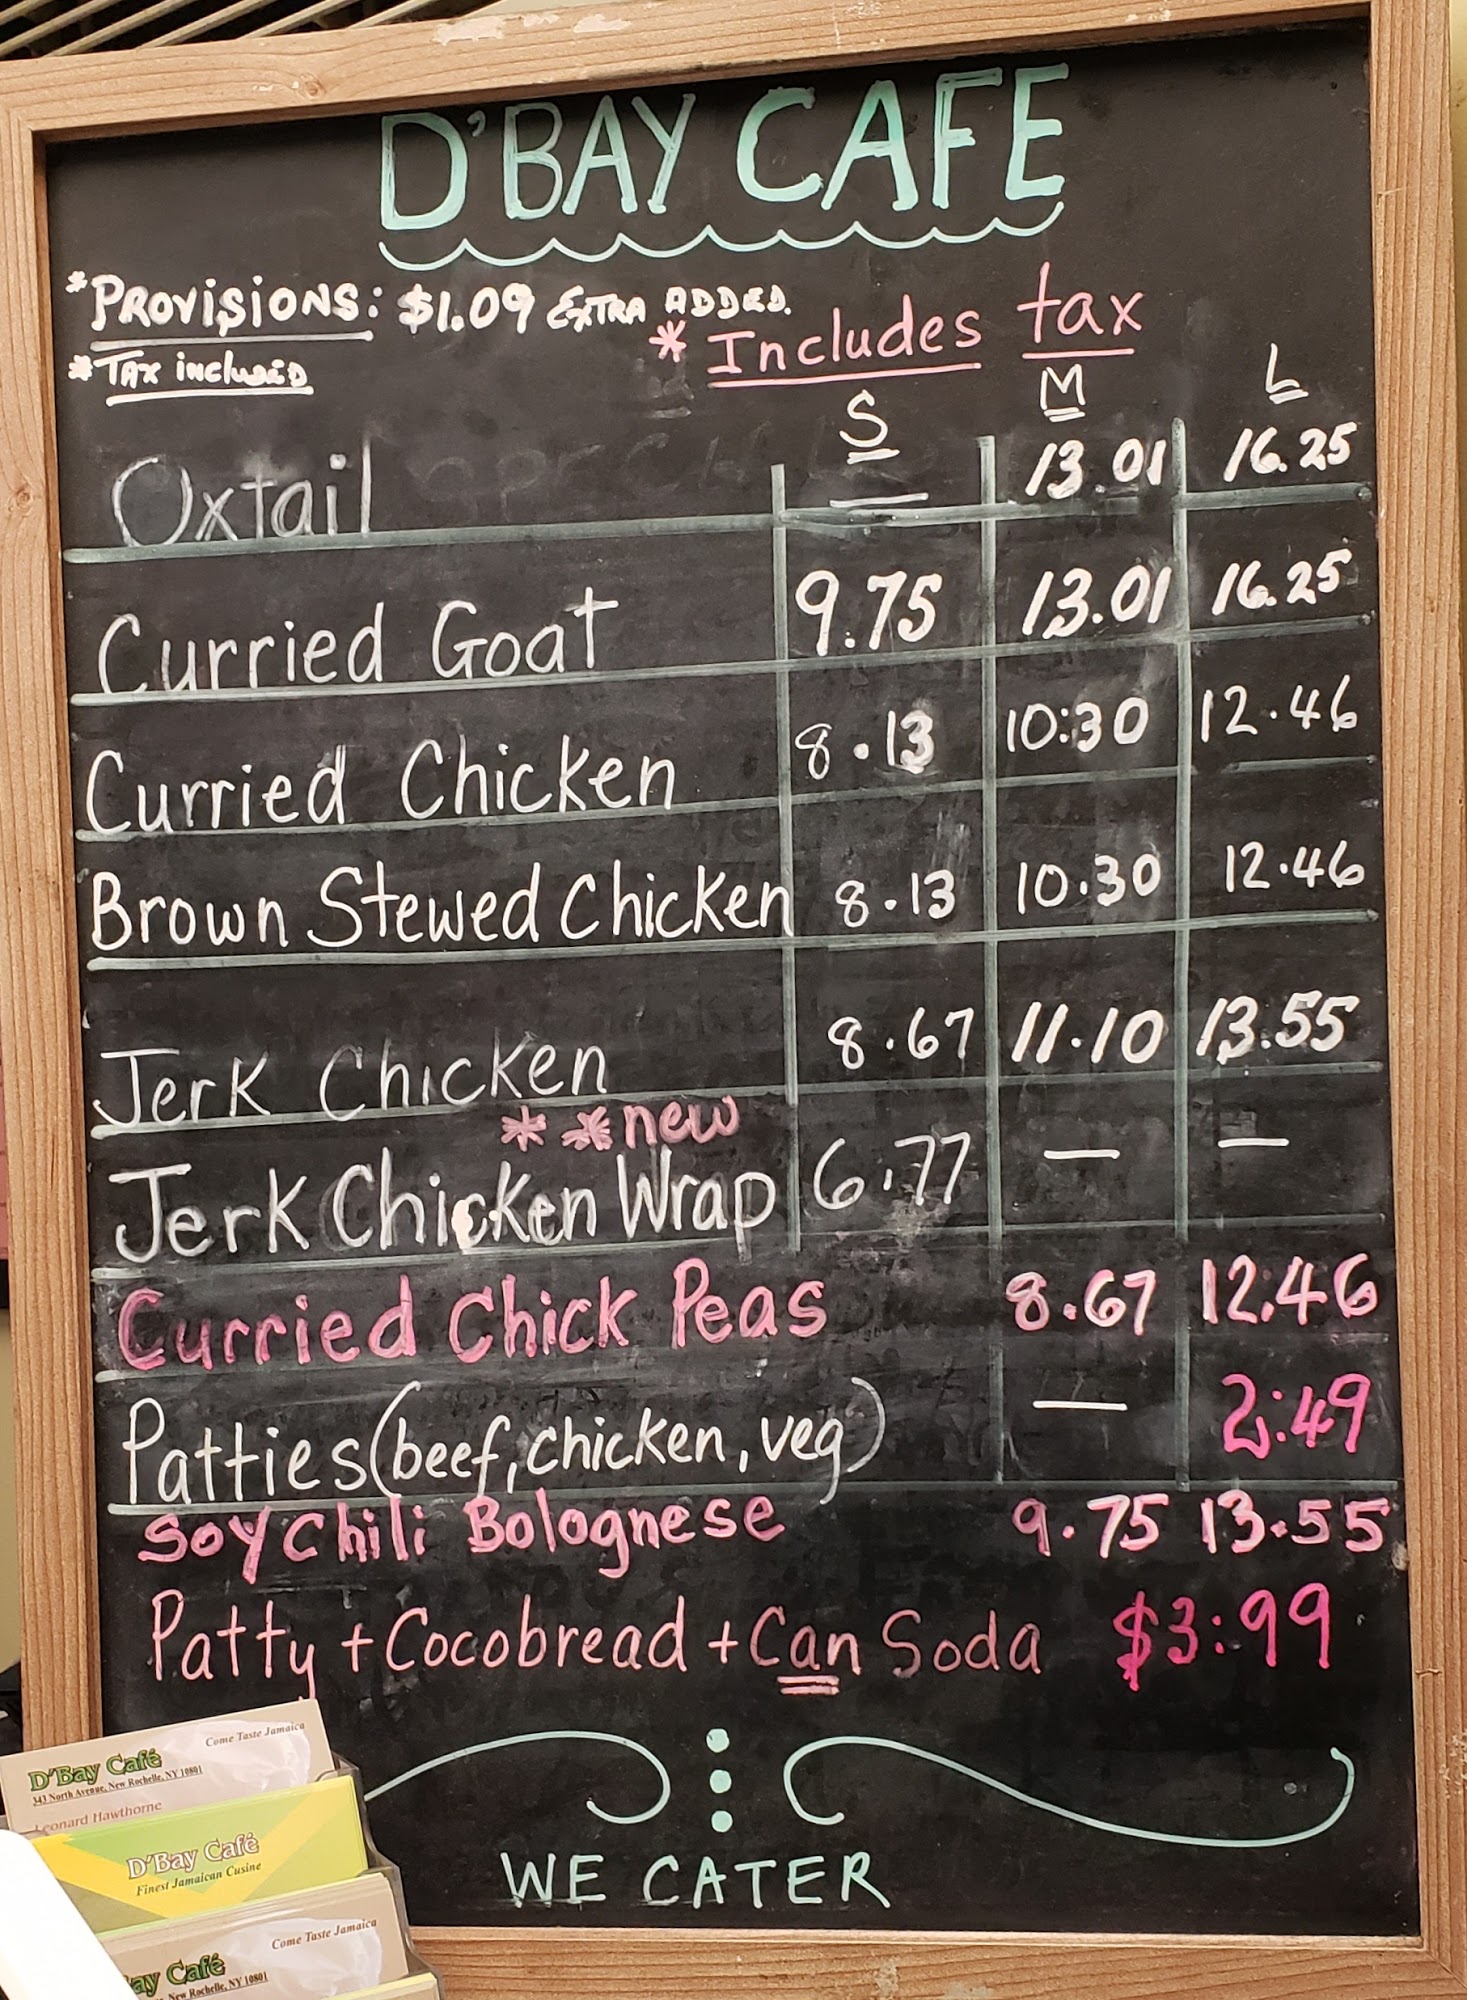 D'BAY CAFE
*PROVISIONS: $1.09 EXTRA ADDED.
* Includes tax
*TAX INCLUDED
S M L
Oxtail — 13.01 16.25
Curried Goat 9.75 13.01 16.25
Curried Chicken 8.13 10:30 12.46
Brown Stewed Chicken 8.13 10.30 12.46
Jerk Chicken 8.67 11.10 13.55
* * new
Jerk Chicken Wrap 6.77 — —
Curried Chick Peas 8.67 12.46
Patties (beef, chicken, veg) — 2:49
Soy Chili Bolognese 9.75 13.55
Patty + Cocobread + Can Soda $3:99
WE CATER
Come Taste Jamaica
D'Bay Café
343 North Avenue, New Rochelle, NY 10801
Leonard Hawthorne
D'Bay Café
Finest Jamaican Cusine
Come Taste Jamaica
ay Café
New Rochelle, NY 10801